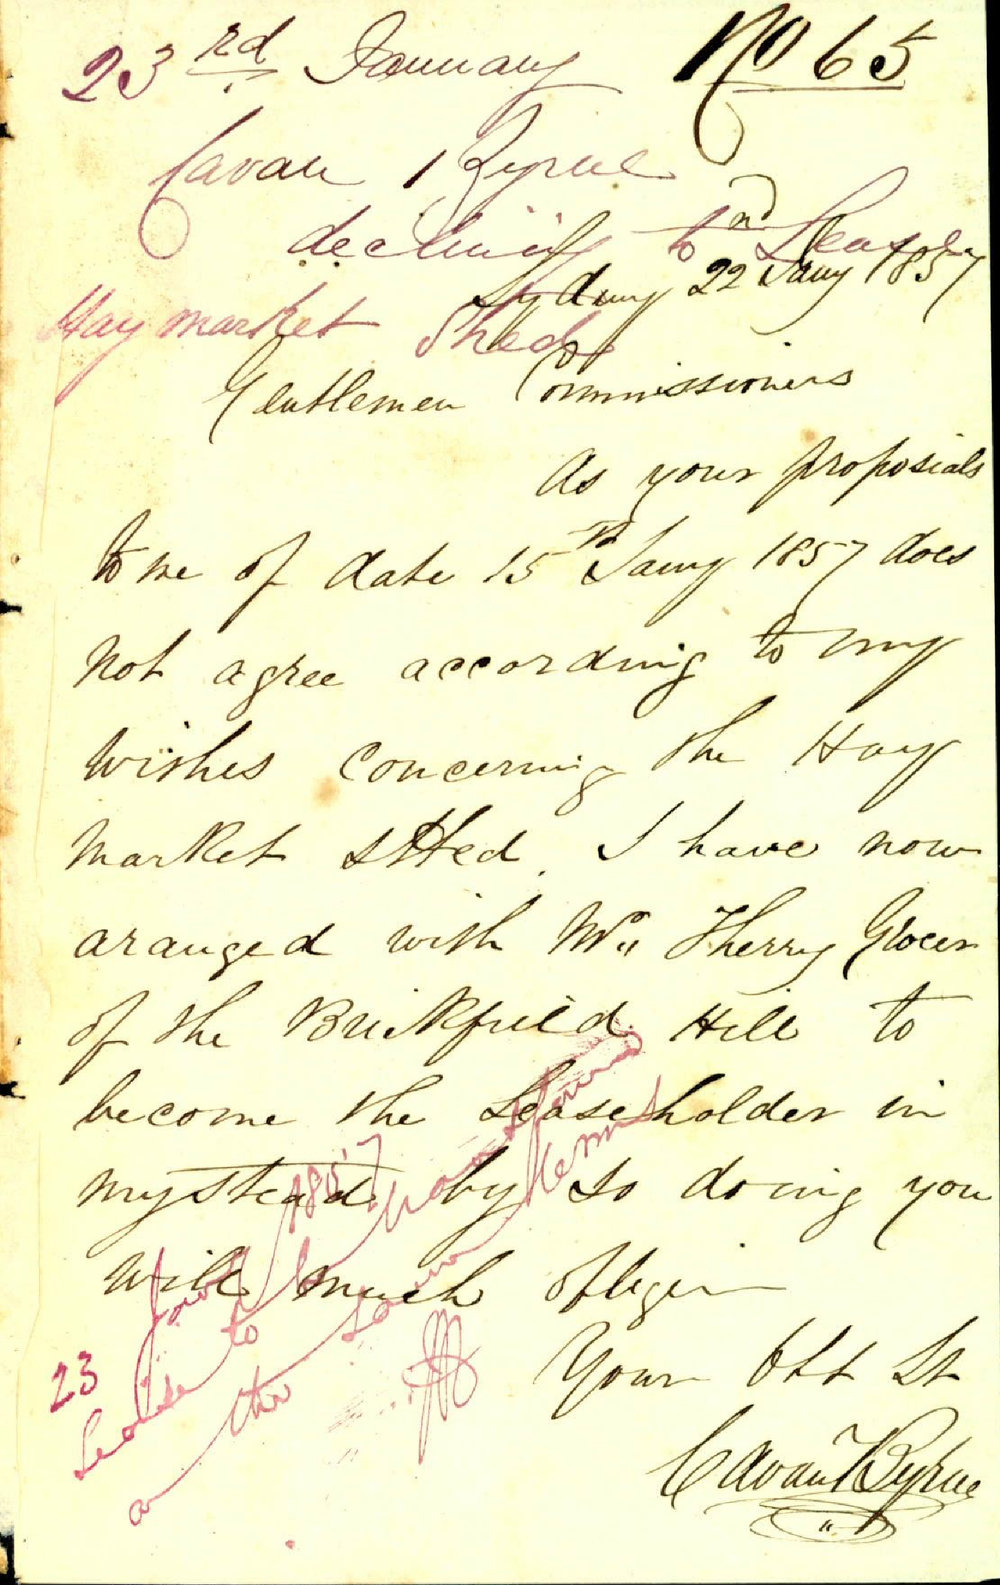 23rd January No 65
Cavan Byrne
declining to Lease
Sydney 22nd Jany 1857
Hay market Shed
Gentlemen Commissioners
As your proposials
to me of date 15th Jany 1857 does
not agree according to my
wishes concerning the Hay
market SHed. I have now
aranged with Mr Therry Grocer
of the Brickfield Hill to
become the Leaseholder in
mystead by so doing you
will much oblige
Your Obt St
Cavan Byrne
23 Jany 1857
Lease to be transferred
on the same terms